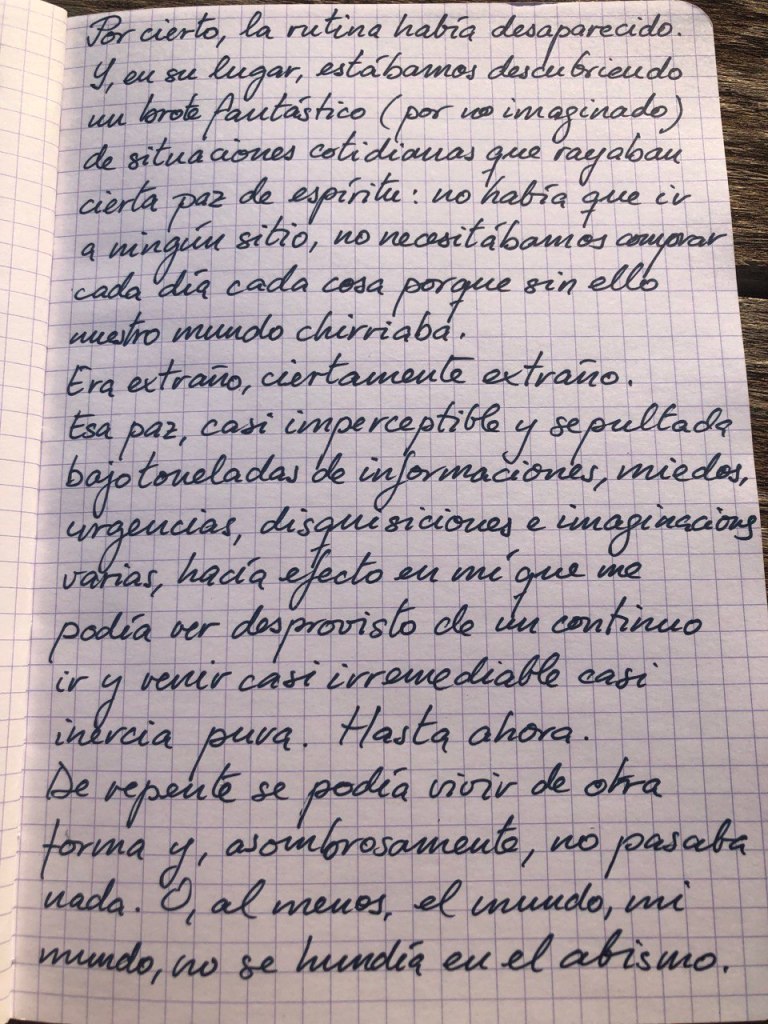 Por cierto, la rutina había desaparecido.
Y, en su lugar, estábamos descubriendo
un brote fantástico (por no imaginado)
de situaciones cotidianas que rayaban
cierta paz de espíritu: no había que ir
a ningún sitio, no necesitábamos comprar
cada día cada cosa porque sin ello
nuestro mundo chirriaba.
Era extraño, ciertamente extraño.
Esa paz, casi imperceptible y sepultada
bajo toneladas de informaciones, miedos,
urgencias, disquisiciones e imaginaciones
varias, hacía efecto en mí que me
podía ver desprovisto de un continuo
ir y venir casi irremediable casi
inercia pura. Hasta ahora.
De repente se podía vivir de otra
forma y, asombrosamente, no pasaba
nada. O, al menos, el mundo, mi
mundo, no se hundía en el abismo.